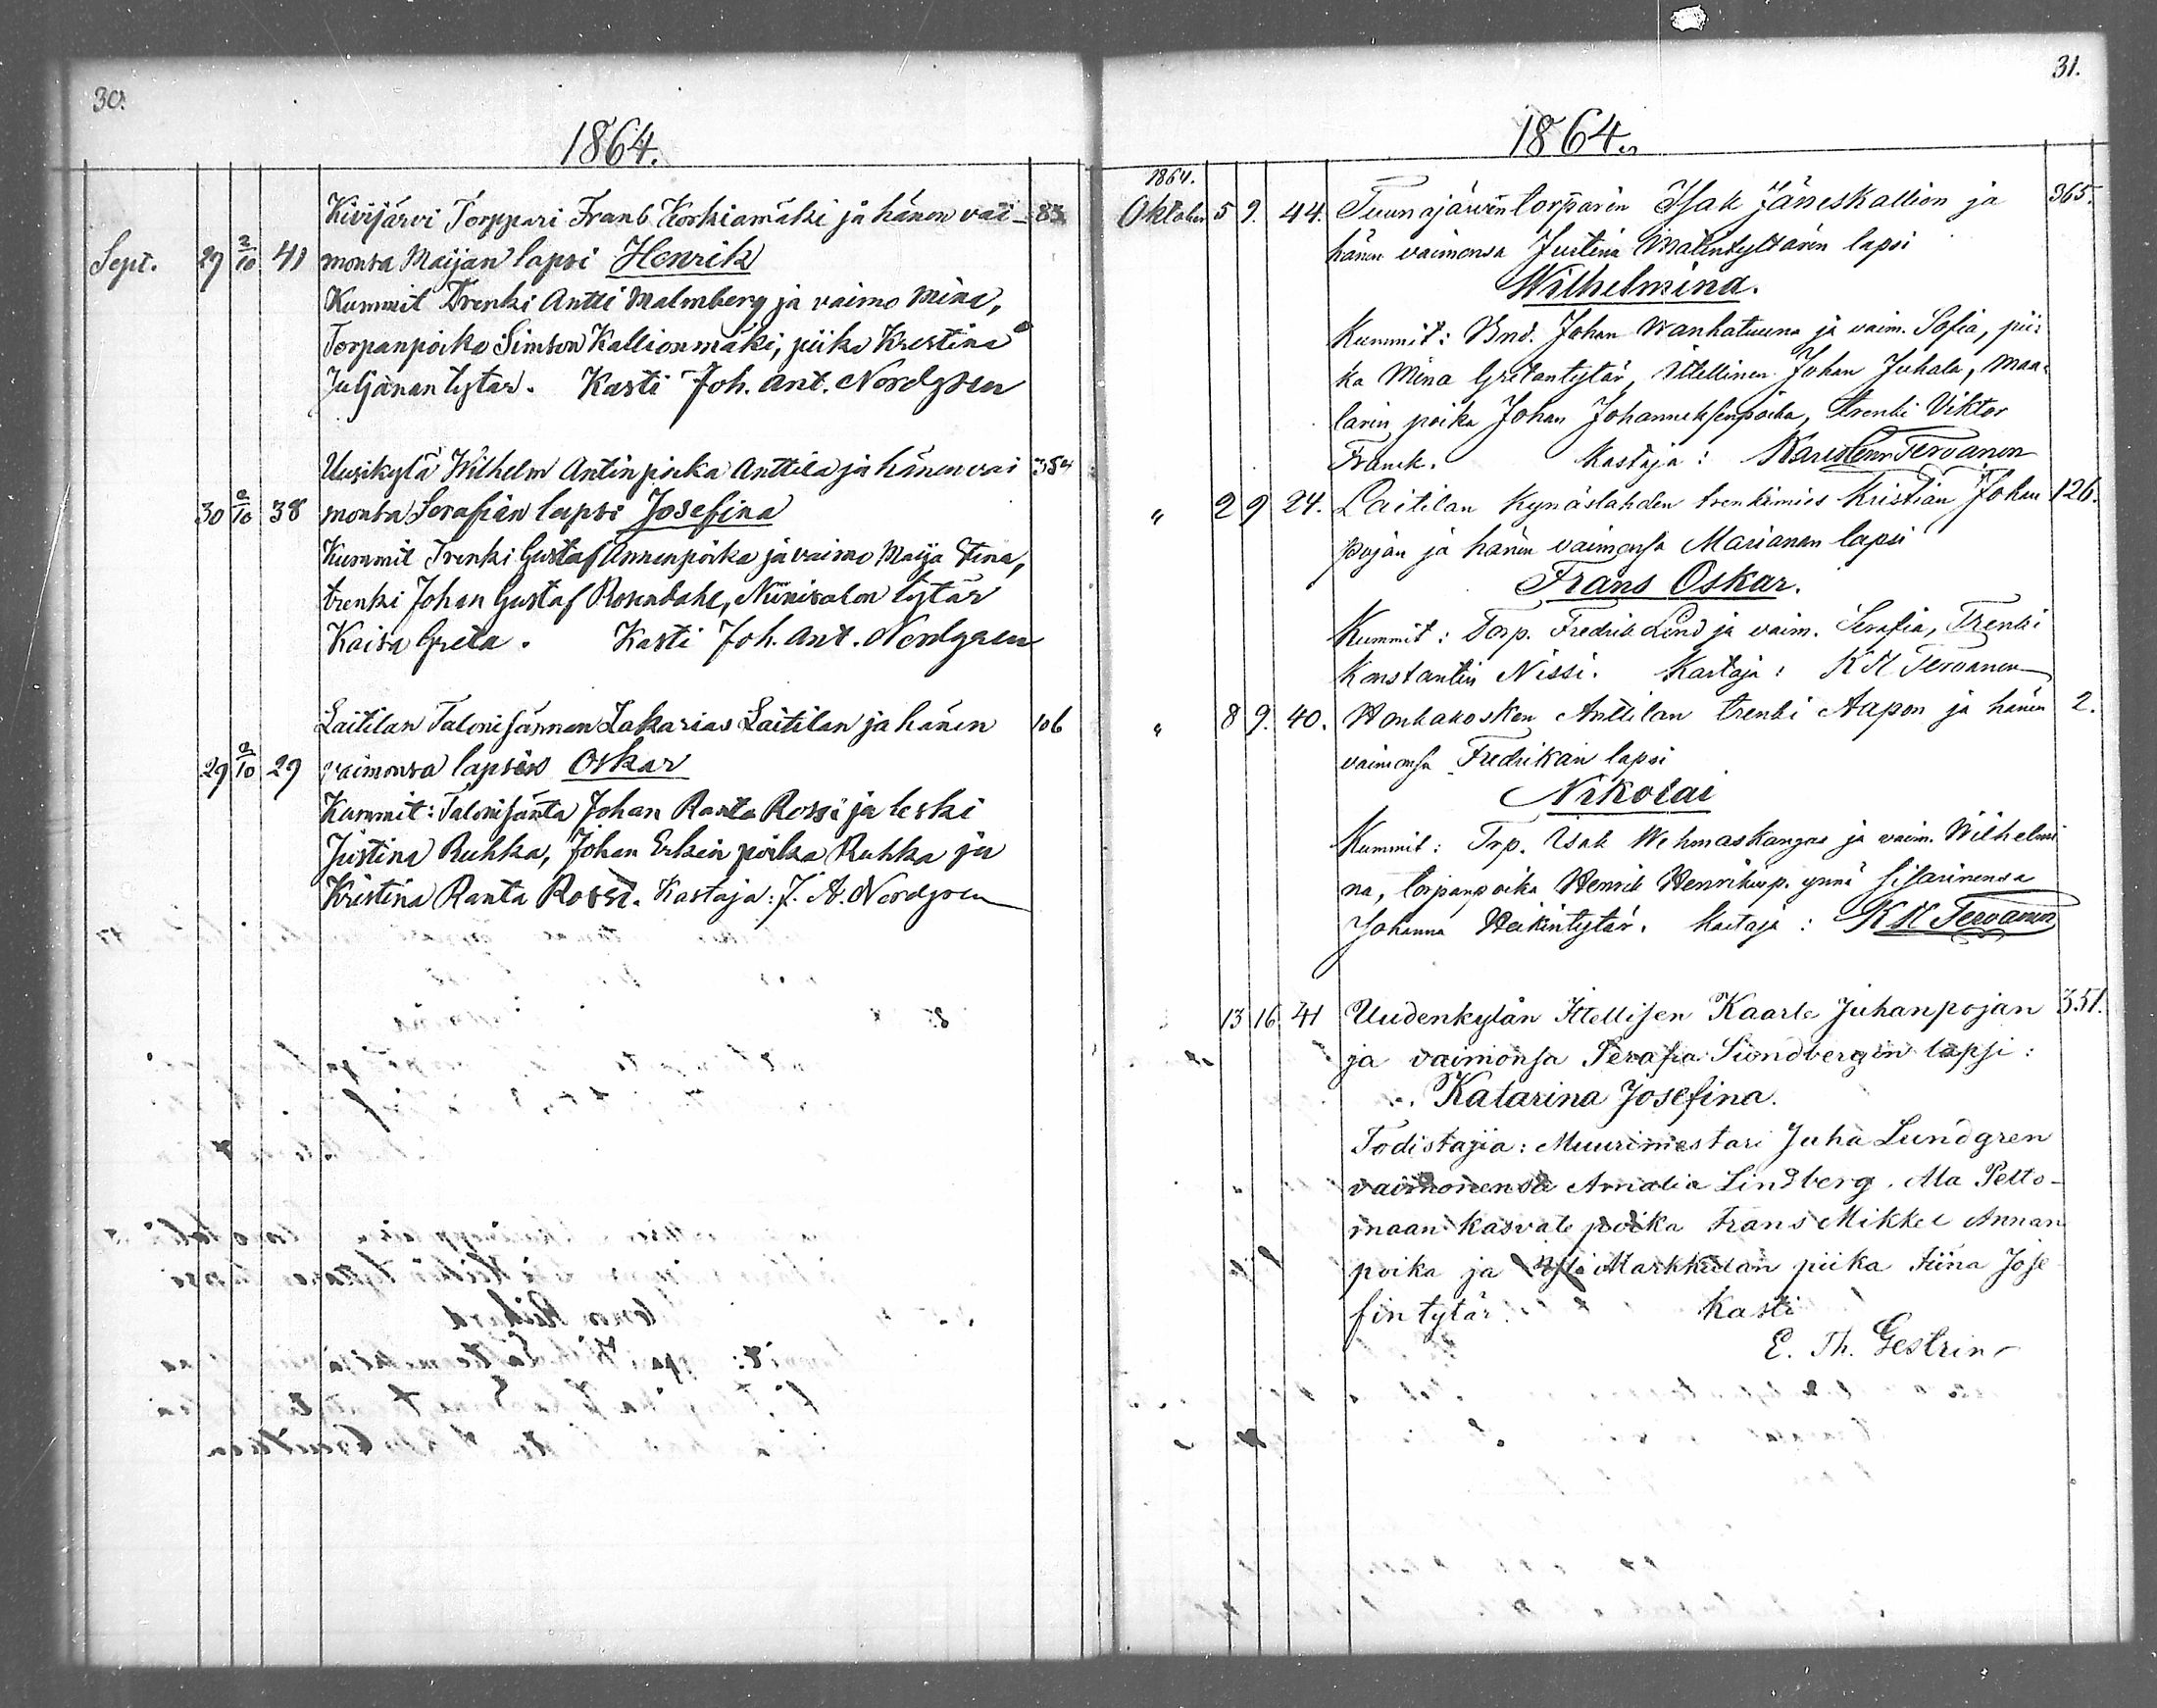 30.
1864.
Kivijärvi Torppari Frans Korkiamäki ja hänen vai- 83
Sept. 29 2/10 41 monsa Maijan lapsi Henrik
Kummit Trenki Antti Malmberg ja vaimo Mina,
Torpanpoika Simson Kallionmäki, piika Krestina
Juljanan tytar. Kasti Joh. Ant. Nordgren
Uusikylä Wilhelm Antinpoika Anttila ja hänen vai 354
30 2/10 38 monsa Serafian lapsi Josefina
Kummit Trenki Gustaf Annenpoika ja vaimo Maija Tina,
trenki Johan Gustaf Rosendahl, Niinisalon tytär
Kaisa Greta. Kasti Joh. Ant. Nordgren
Laitilan Talonisännän Zakarias Laitilan ja hänen 106
29 2/10 29 vaimonsa lapsi Oskar
Kummit: Talonisänta Johan Ranta Rossi ja leski
Justina Ruhka, Johan Erkin poika Ruhka ja
Kristina Ranta Rossi. Kastaja: J. A. Nordgren
31.
1864.
1864.
Oktober 5 9. 44. Tuunajärwin torparin Isak Jäneskallion ja 365.
hänen vaimonsa Justina Matintyttärin lapsi
Wilhelmina.
Kummit: Bnd. Johan Wanhatuuna ja vaim. Sofia, pii-
ka Mina Gretantytär, Itellinen Johan Juhala, Maa-
larin poika Johan Johanneksenpoika, trenki Viktor
Franck. Kastaja: Tervanen
" 2 9 24. Laitilan Kynäslahden trenkimies Kristian Johan 126.
pojan ja hänen vaimonsa Marianan lapsi
Frans Oskar.
Kummit: Torp. Fredrik Lind ja vaim. Serafia, Trenki
Konstantin Nissi. Kastaja: K H Tervanen
" 8 9. 40. Honkakosken Anttilan trenki Aapon ja hänen 2.
vaimonsa Fredrikan lapsi
Nikolai
Kummit: Trp. Isak Wehmaskangas ja vaim. Wilhelmi
na, torpanpoika Henrik Henrikinp. ynnä sisarinensa
Johanna Heikintytär. Kastaja: K H Tervanen
13 16 41 Uudenkylän Itellisen Kaarle Juhanpojan 351.
ja vaimonsa Serafia Sundbergin lapsi:
Katarina Josefina.
Todistajia: Muurimestari Juha Lundgren
vaimonensa Amalia Lindberg. Ala Pelto-
maan kasvate poika Frans Mikkel Annan
poika ja Markkulan piika Tiina Jose
fintytär. Kasti
E. Th. Gestrin